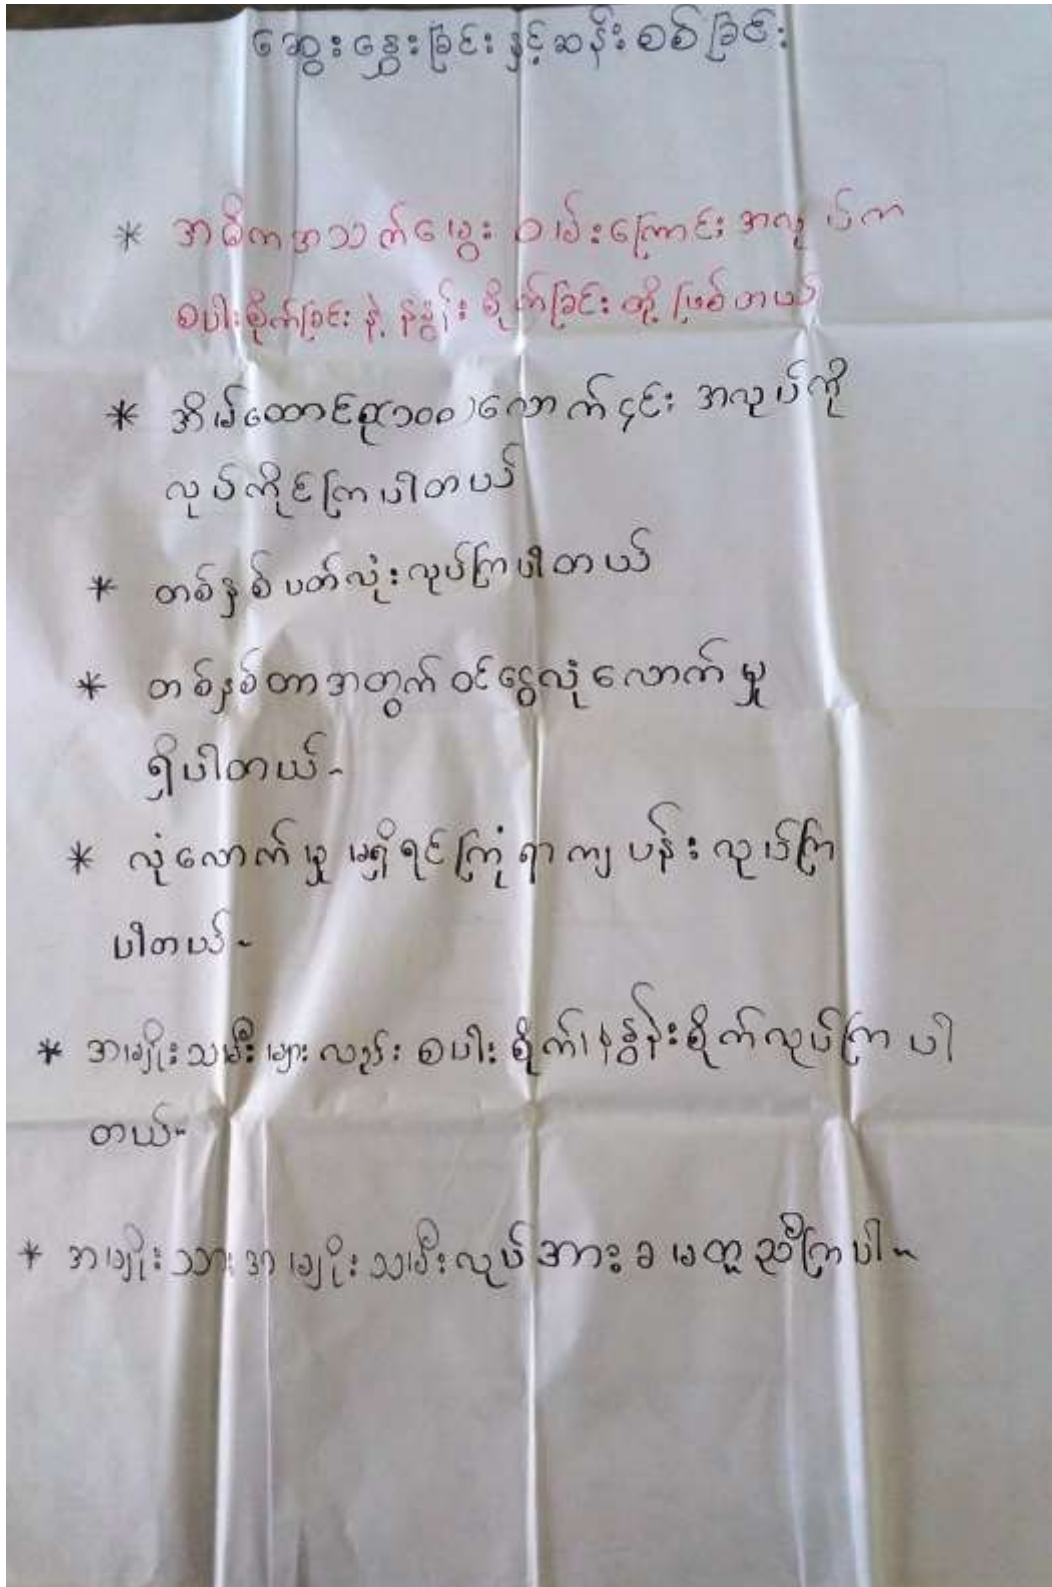 ဆွေးနွေးခြင်းနှင့်ဆန်းစစ်ခြင်း
* အဓိကအသက်မွေး ဝမ်းကြောင်းအလုပ်က
စပါးစိုက်ခြင်း နဲ့ နနွင်း စိုက်ခြင်း တို့ ဖြစ်တယ်
* အိမ်ထောင်စု(၁၀၀)လောက်၄င်း အလုပ်ကို
လုပ်ကိုင်ကြပါတယ်
* တစ်နှစ်ပတ်လုံးလုပ်ကြပါတယ်
* တစ်နှစ်တာအတွက် ဝင်ငွေလုံလောက်မှု
ရှိပါတယ်-
* လုံလောက်မှု မရှိရင်ကြုံရာကျပန်းလုပ်ကြ
ပါတယ်-
* အမျိုးသမီးများလည်း စပါးစိုက်၊နနွင်းစိုက်လုပ်ကြပါ
တယ်-
* အမျိုးသားအမျိုးသမီးလုပ်အားခမတူညီကြပါ-